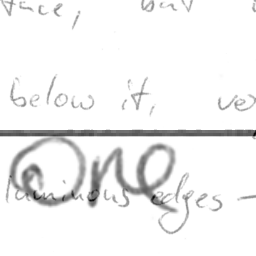 but
below it,
One
luminous edges –